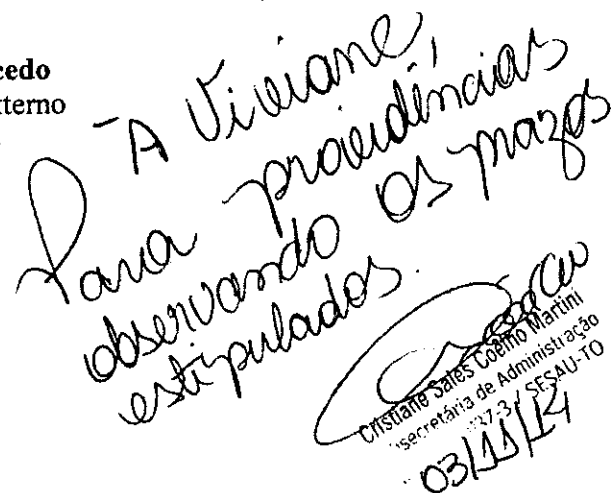 cedo
xterno
À Viviane,
Para providências
observando os prazos
estipulados.
Cristiane Sales Coelho Martini
Secretária de Administração
37-3 / SESAU-TO
03/11/14